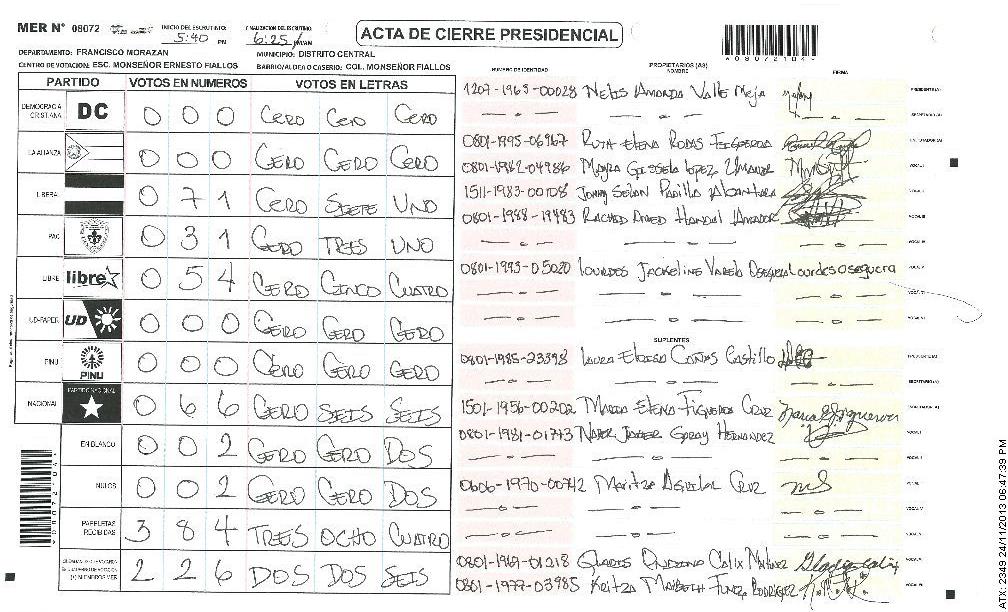 MER N° 08072 INICIO DEL ESCRUTINIO: 5:40 PM FINALIZACION DEL ESCRUTINIO: 6:25 /AM
ACTA DE CIERRE PRESIDENCIAL
DEPARTAMENTO: FRANCISCO MORAZAN MUNICIPIO: DISTRITO CENTRAL
CENTRO DE VOTACION: ESC. MONSEÑOR ERNESTO FIALLOS BARRIO/ALDEA O CASERIO: COL. MONSEÑOR FIALLOS
PARTIDO VOTOS EN NUMEROS VOTOS EN LETRAS
DEMOCRACIA CRISTIANA DC 0 0 0 CERO CERO CERO
LA ALIANZA 0 0 0 CERO CERO CERO
LIBERAL 0 7 1 CERO SIETE UNO
PAC 0 3 1 CERO TRES UNO
LIBRE libre 0 5 4 CERO CINCO CUATRO
UD-FAPER UD 0 0 0 CERO CERO CERO
PINU PINU 0 0 0 CERO CERO CERO
NACIONAL PARTIDO NACIONAL 0 6 6 CERO SEIS SEIS
EN BLANCO 0 0 2 CERO CERO DOS
NULOS 0 0 2 CERO CERO DOS
PAPELETAS RECIBIDAS 3 8 4 TRES OCHO CUATRO
2 2 6 DOS DOS SEIS
NUMERO DE IDENTIDAD PROPIETARIOS (AS) NOMBRE FIRMA
1207-1963-00028 Valle Mejia PRESIDENTE(A)
SECRETARIO(A)
0801-1995-06967 RUTH ELENA RODAS FIGUEROA
0801-1982-04986 MAYRA GISSELA LOPEZ
1511-1983-00108 Padilla Alcantara
0801-1988-19483 Handal Amador
0801-1993-05020 LOURDES JACKELINE VARELA OSEGUERA Lourdes oseguera
SUPLENTES
0801-1985-23398 LAURA Castillo PRESIDENTE(A)
SECRETARIO(A)
1501-1956-00202 MARIA ELENA FIGUEROA CRUZ
0801-1981-01773 JAVIER GARAY HERNANDEZ
0606-1970-00742 Maritza Aguilar Cruz
0801-1969-01218 Calix Martinez
0801-1977-03985 Keitza Maribeth Funez Rodriguez
ATX-2349 24/11/2013 06:47:39 PM